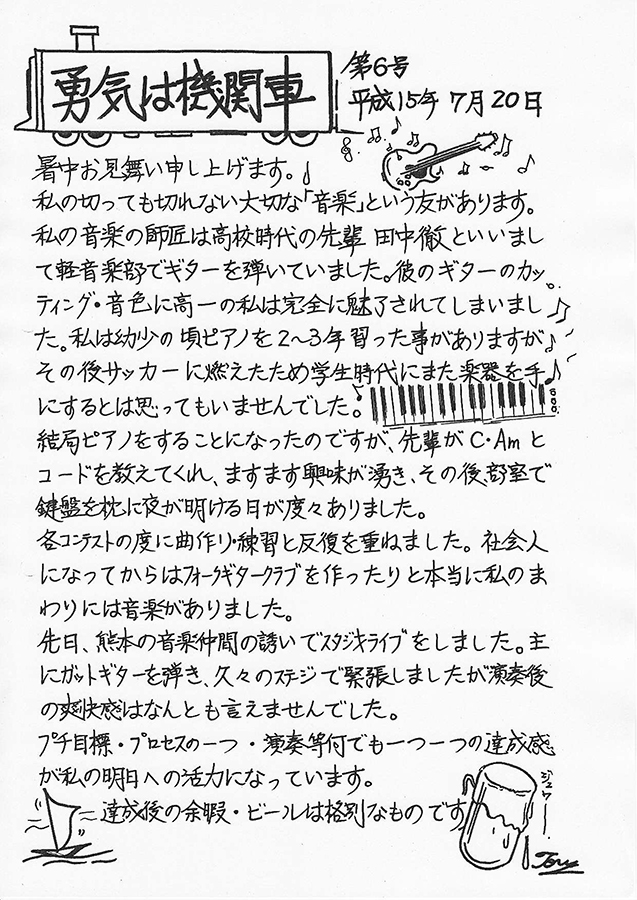 勇気は機関車
第6号
平成15年 7月20日
暑中お見舞い申し上げます。
私の切っても切れない大切な「音楽」という友があります。
私の音楽の師匠は高校時代の先輩 田中徹といいまし
て軽音楽部でギターを弾いていました。彼のギターのカッ
ティング・音色に高一の私は完全に魅了されてしまいまし
た。私は幼少の頃ピアノを2〜3年習った事がありますが
その後サッカーに燃えたため学生時代にまた楽器を手
にするとは思ってもいませんでした。
結局ピアノをすることになったのですが、先輩がC・Amと
コードを教えてくれ、ますます興味が湧き、その後、部室で
鍵盤を枕に夜が明ける日が度々ありました。
各コンテストの度に曲作り・練習と反復を重ねました。社会人
になってからはフォークギタークラブを作ったりと本当に私のま
わりには音楽がありました。
先日、熊本の音楽仲間の誘いでスタジオライブをしました。主
にガットギターを弾き、久々のステージで緊張しましたが演奏後
の爽快感はなんとも言えませんでした。
プチ目標・プロセスの一つ・演奏等何でも一つ一つの達成感
が私の明日への活力になっています。
達成後の余暇・ビールは格別なものです
ジュワー
Tory